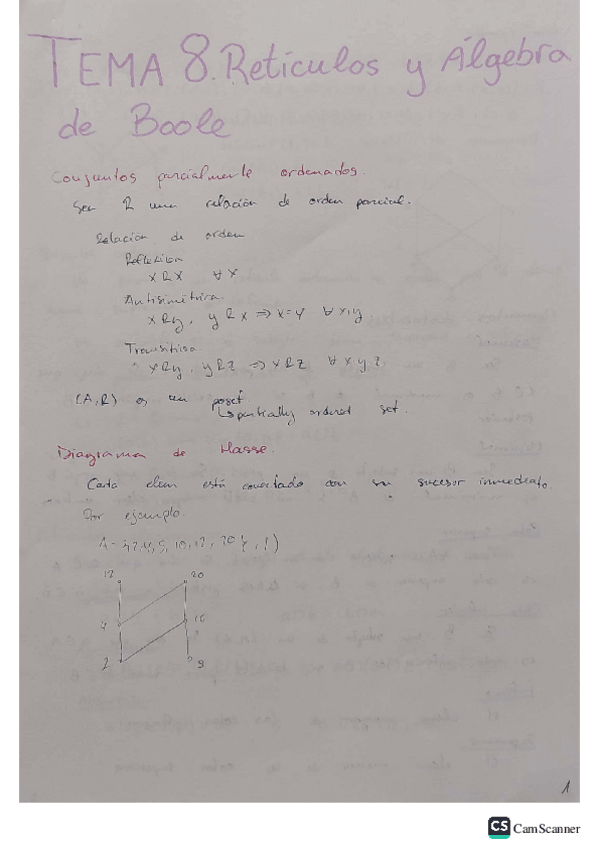 TEMA 8. Retículos y Álgebra
de Boole
Conjuntos parcialmente ordenados.
Sea R una relación de orden parcial.
Relación de orden
Reflexiva
x R x ∀ x
Antisimétrica
x R y, y R x ⇒ x = y ∀ x, y
Transitiva
x R y, y R z ⇒ x R z ∀ x y z
(A, R) es un poset
↳ partially ordered set.
Diagrama de Hasse.
Cada elem está conectado con su sucesor inmediato.
Por ejemplo.
A = 10, 12, 20
12 20
4 10
2
1
CS CamScanner